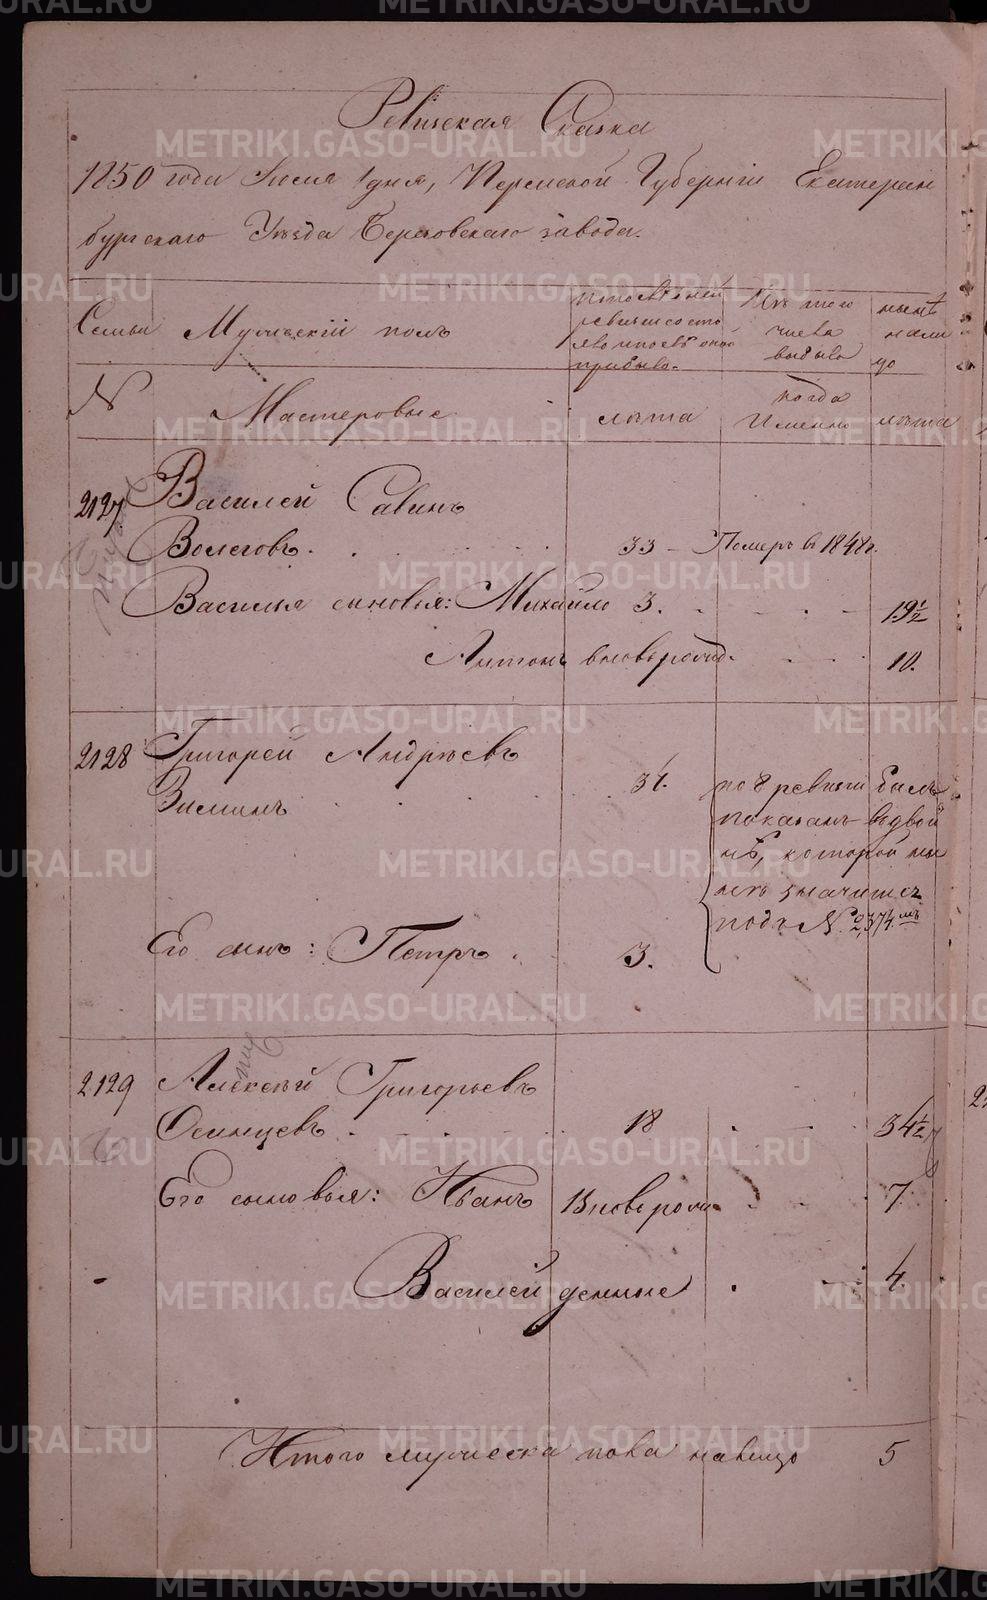 METRIKI.GASO-URAL.RU
Ревизская Сказка
1850 года Июля 1 дня, Пермской Губерніи Екатерин
бургскаго Уѣзда Березовскаго завода.
Семьи Мужескій полъ
По последней ревизіи состо яло и после оной прибыло.
Изъ того числа выбыло
нынѣ на ли цо
N Мастеровые лѣта когда Именно лѣта
2127 Василей Савинъ
Волеговъ. 33 – Померъ въ 1848 г.
Василья сыновья: Михайло 3. 19½
Антонъ вновьрожд. 10.
2128 Григорей Андрѣевъ
Зиминъ 31.
по 8 ревизіи былъ
показанъ вдвой
нѣ, которой ны
нѣ значитсѧ
подъ N. 2,374.мъ
Его сынъ: Петръ 3.
2129 Алексѣй Григорьевъ
Осинцевъ 18 34½
Его сыновья: Иванъ Вновьрожд. 7.
Василей 4.
Итого мужеска пола налицо 5